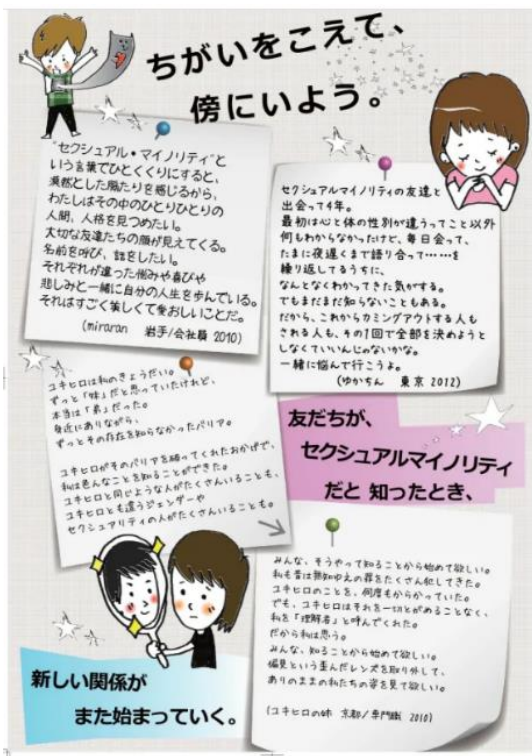 ちがいをこえて、
傍にいよう。
“セクシュアル・マイノリティ”と
いう言葉でひとくくりにすると、
漠然とした隔たりを感じるから、
わたしはその中のひとりひとりの
人間、人格を見つめたい。
大切な友達たちの顔が見えてくる。
名前を呼び、話をしたい。
それぞれが違った悩みや喜びや
悲しみと一緒に自分の人生を歩んでいる。
それはすごく美しくて愛おしいことだ。
(miraran 岩手/会社員 2010)
セクシュアルマイノリティの友達と
出会って4年。
最初は心と体の性別が違うってこと以外
何もわからなかったけど、毎日会って、
たまに夜遅くまで語り合って……を
繰り返してるうちに、
なんとなくわかってきた気がする。
でもまだまだ知らないこともある。
だから、これからカミングアウトする人も
される人も、その1回で全部を決めようと
しなくていいんじゃないかな。
一緒に悩んで行こうよ。
(ゆかちん 東京 2012)
ユキヒロは私のきょうだい。
ずっと「妹」だと思っていたけれど、
本当は「弟」だった。
身近にありながら、
ずっとその存在を知らなかったバリア。
ユキヒロがそのバリアを破ってくれたおかげで、
私は色んなことを知ることができた。
ユキヒロと同じような人がたくさんいることも、
ユキヒロとも違うジェンダーや
セクシュアリティの人がたくさんいることも。
友だちが、
セクシュアルマイノリティ
だと 知ったとき、
みんな、そうやって知ることから始めて欲しい。
私も昔は無知ゆえの罪をたくさん犯してきた。
ユキヒロのことを、何度もからかっていた。
でも、ユキヒロはそれを一切とがめることなく、
私を「理解者」と呼んでくれた。
だから私は思う。
みんな、知ることから始めて欲しい。
偏見という歪んだレンズを取り外して、
ありのままの私たちの姿を見て欲しい。
(ユキヒロの姉 京都/専門職 2010)
新しい関係が
また始まっていく。